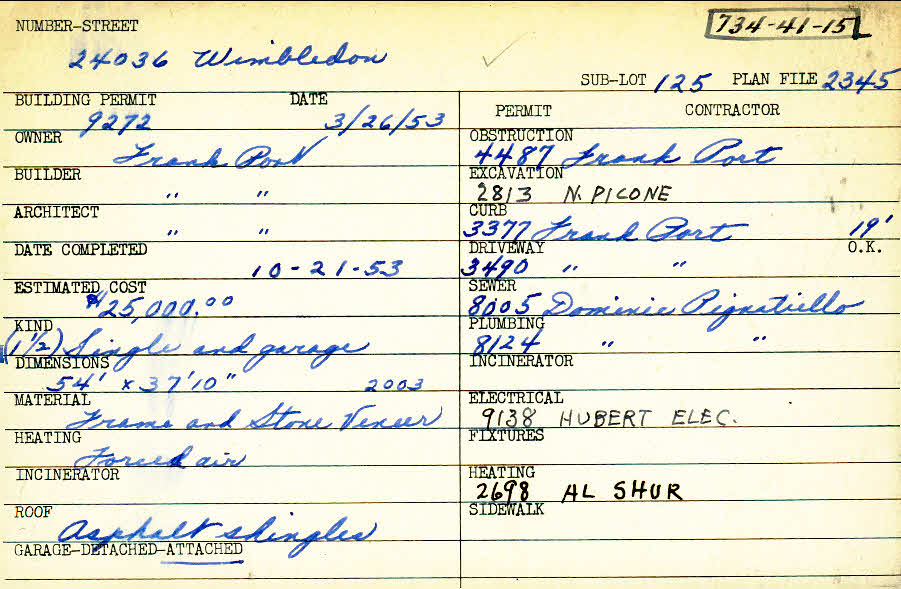 NUMBER-STREET
734-41-15
24036 Wimbledon
SUB-LOT 125 PLAN FILE 2345
BUILDING PERMIT DATE
9272 3/26/53
OWNER
Frank Port
BUILDER
" "
ARCHITECT
" "
DATE COMPLETED
10-21-53
ESTIMATED COST
$25,000.00
KIND
(1 1/2) Single and garage
DIMENSIONS
54' x 37'10" 2003
MATERIAL
Frame and Stone Veneer
HEATING
Forced air
INCINERATOR
ROOF
Asphalt shingles
GARAGE-DETACHED-ATTACHED
PERMIT CONTRACTOR
OBSTRUCTION
4487 Frank Port
EXCAVATION
2813 N. PICONE
CURB
3377 Frank Port 19'
DRIVEWAY O.K.
3490 " "
SEWER
8005 Dominic Pignatiello
PLUMBING
8124 " "
INCINERATOR
ELECTRICAL
9138 HUBERT ELEC.
FIXTURES
HEATING
2698 AL SHUR
SIDEWALK